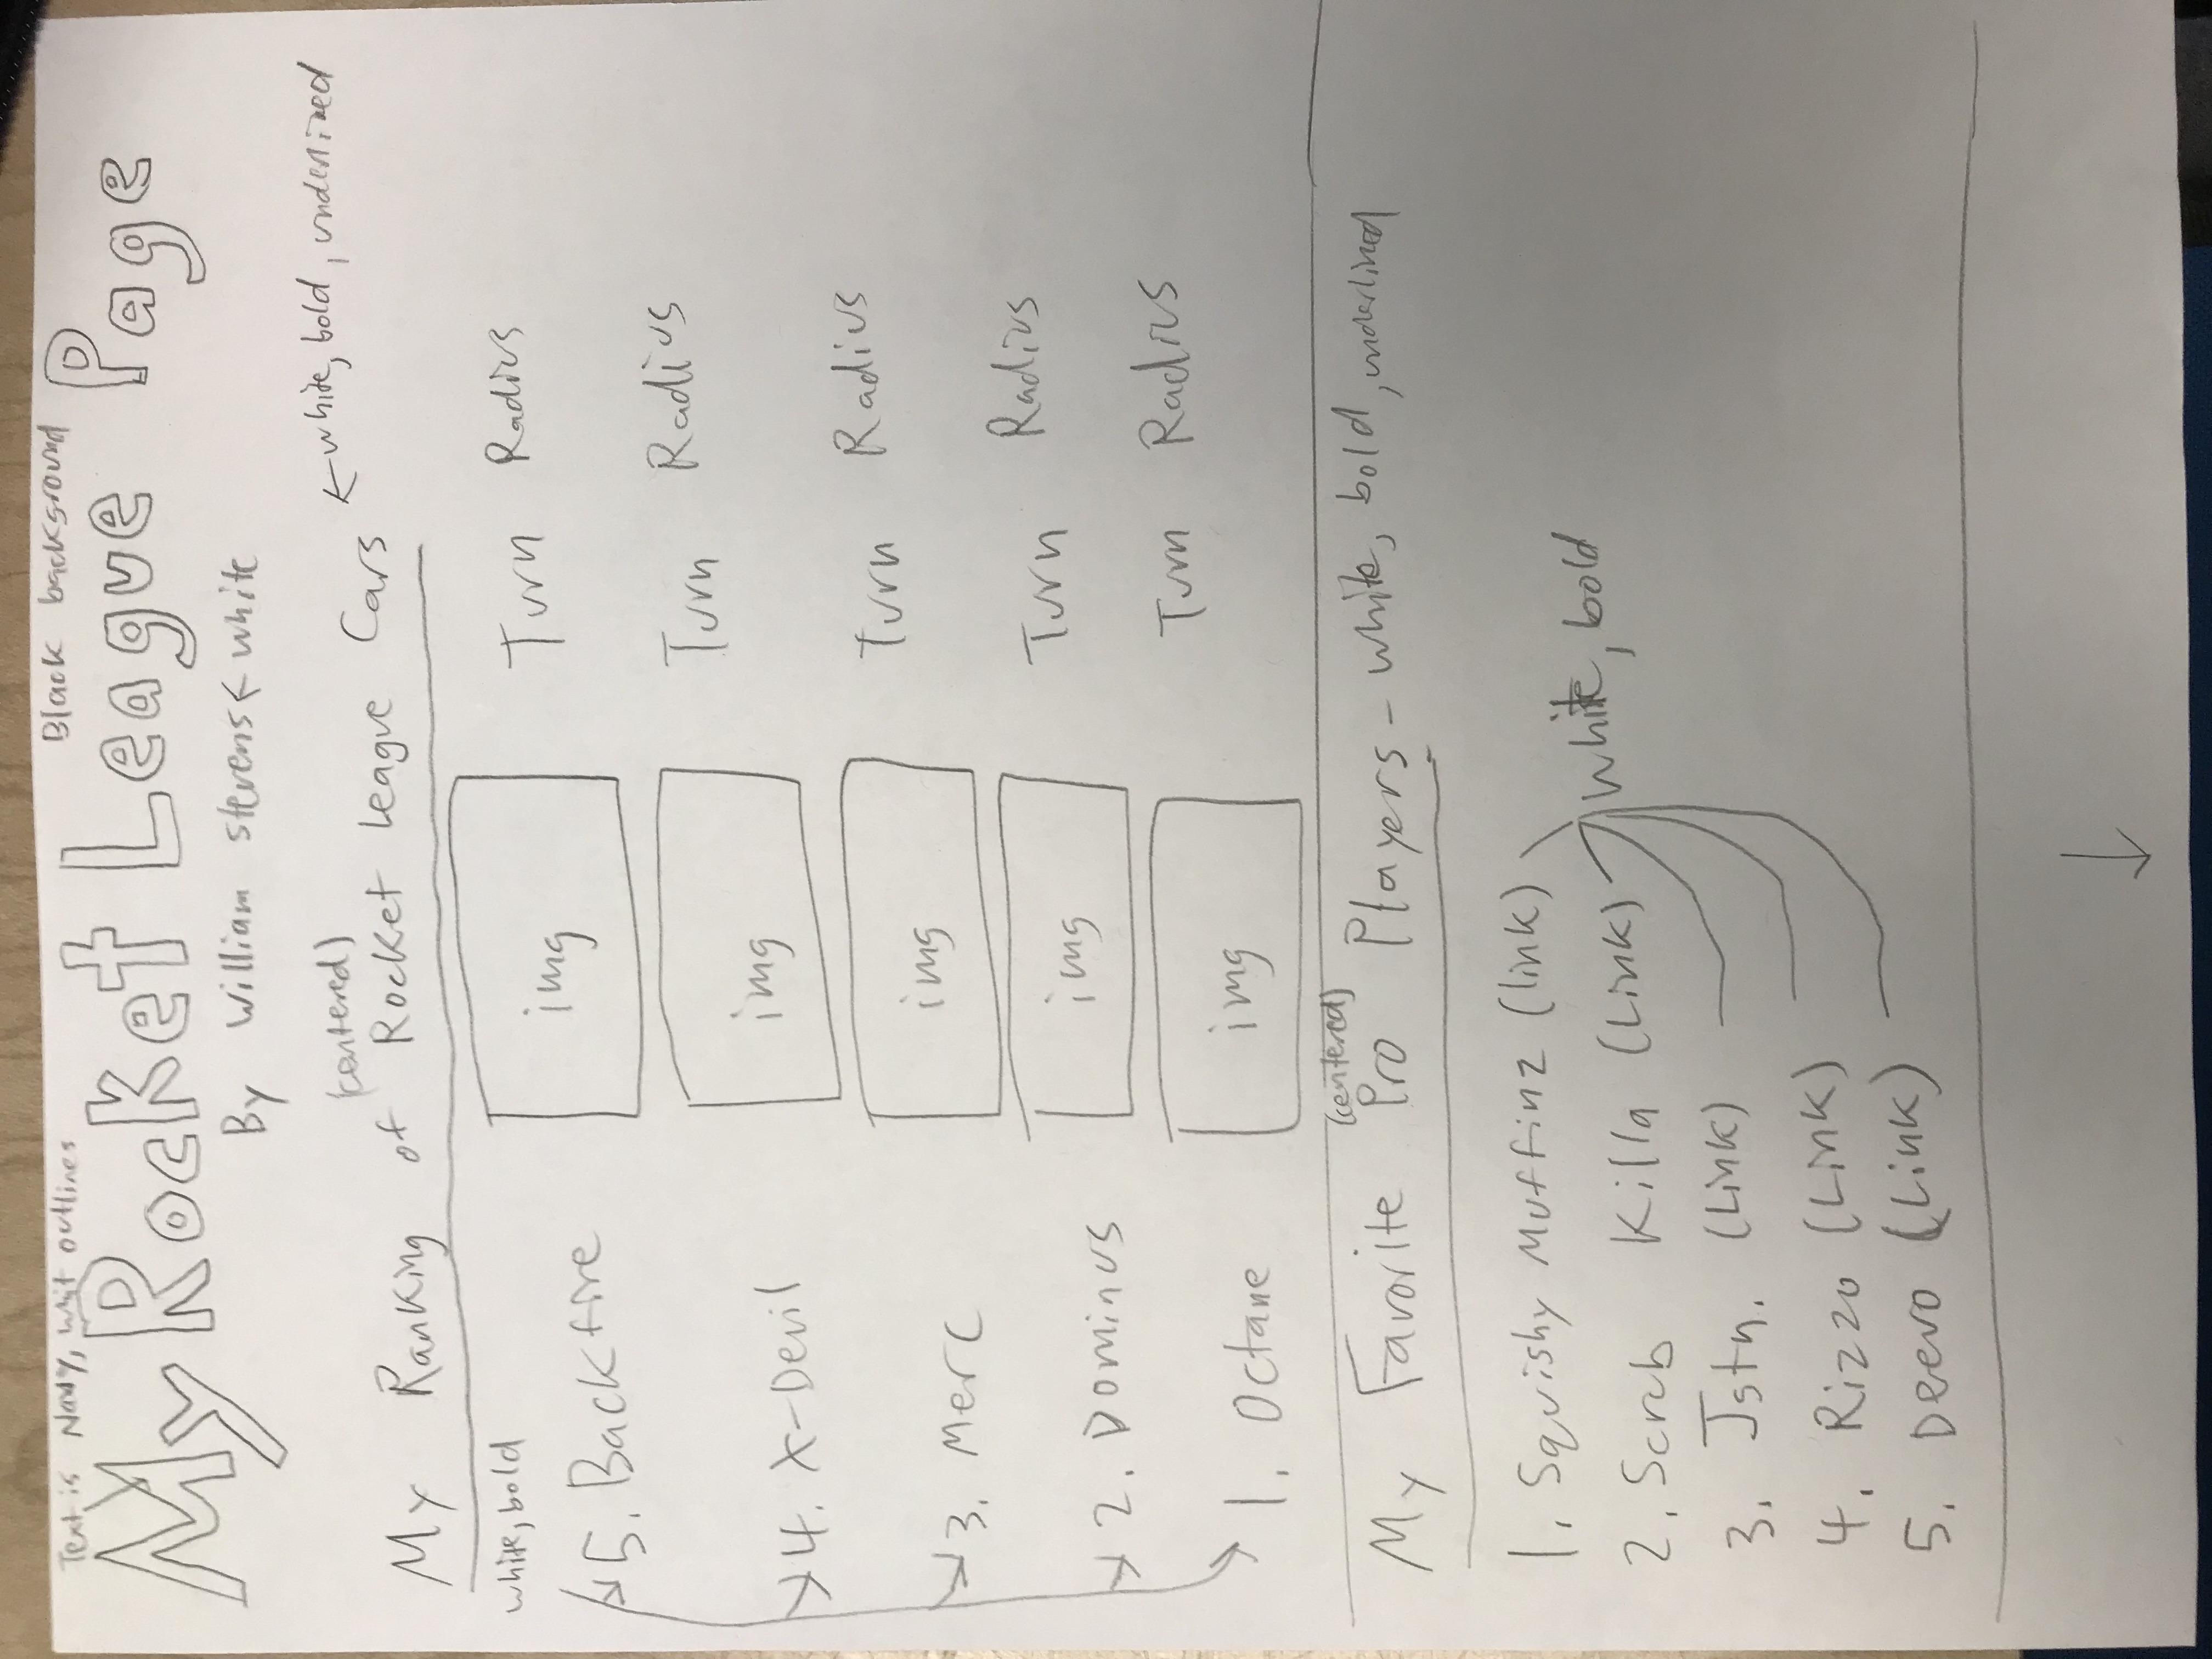 Text is Navy, whit outlines Black background
My Rocket League Page
By William Stevens ← white
(centered)
My Ranking of Rocket League Cars ← white, bold, underlined
white, bold
5. Backfire img Turn Radius
4. X-Devil img Turn Radius
3. Merc img Turn Radius
2. Dominus img Turn Radius
1. Octane img Turn Radius
(centered)
My Favorite Pro Players - white, bold, underlined
1. Squishy Muffinz (link)
2. Scrub Killa (Link) white, bold
3. Jstn. (Link)
4. Rizzo (Link)
5. Devo (Link)